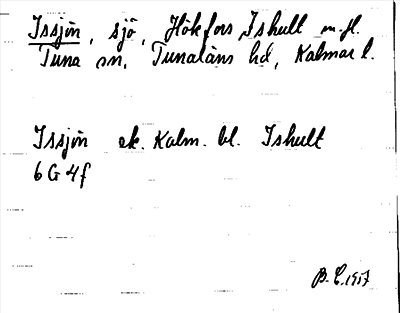 Issjön, sjö, Hökfors, Ishult m.fl.
Tuna sn, Tunaläns hd, Kalmar l.
Issjön ek. Kalm. bl. Ishult
6 G 4f
B.E. 1957